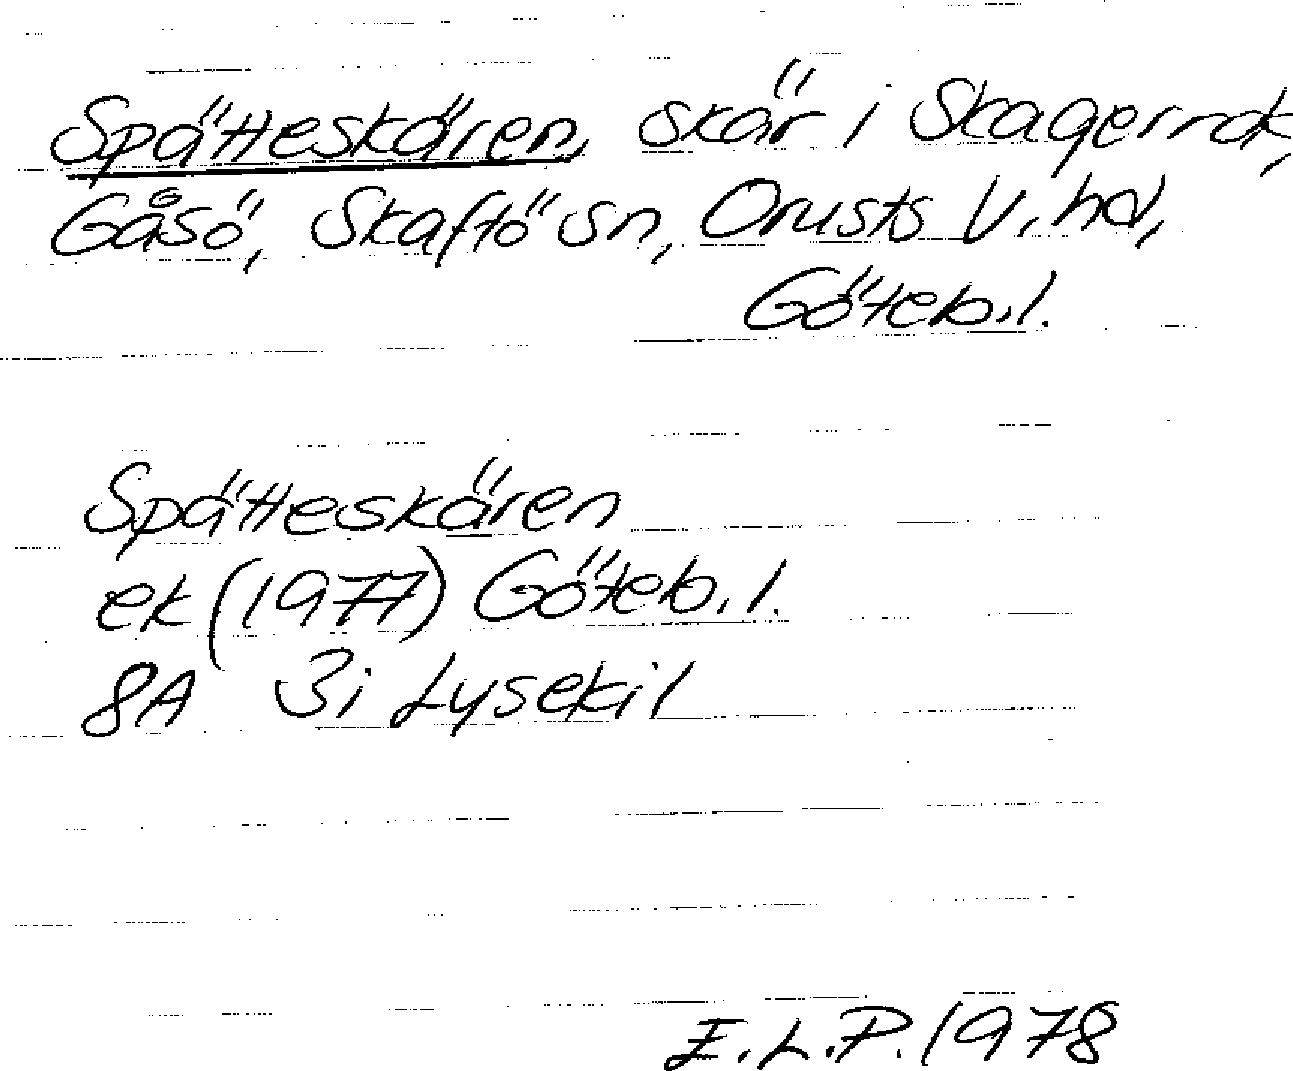 Spätteskären, skär i Skagerrak,
Gåsö, Skaftö sn, Orusts V. hd,
Göteb. l.
Spätteskären
ek (1977) Göteb. l.
8A 3i Lysekil
E.L.P. 1978